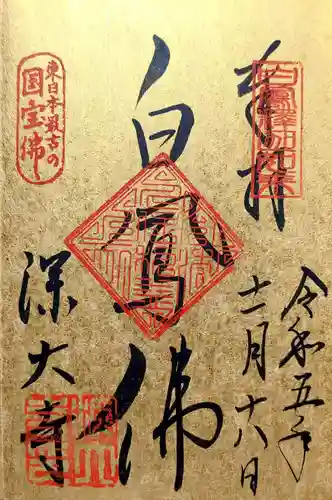 奉拝
令和五年
十一月十八日
白鳳佛
東日本最古の
国宝佛
深大寺